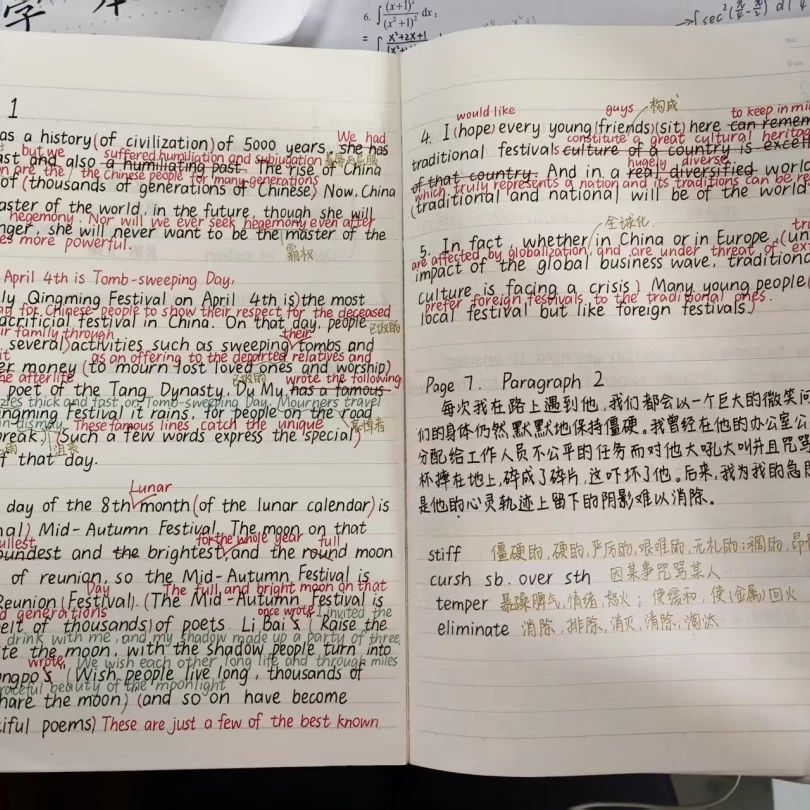 字
6. ∫ (x+1)² / (x²+1)² dx,
= ∫ x²+2x+1
1
We had
as a history (of civilization) of 5000 years. she has
but we suffered humiliation and subjugation
past and also a humiliating past. The rise of China
are the the Chinese people for many generations
of (thousands of generations of Chinese) Now, China
master of the world, in the future, though she will
hegemony. Nor will we ever seek hegemony even after
she will never want to be the master of the
more powerful.
霸权
April 4th is Tomb-sweeping Day,
Qingming Festival on April 4th is) the most
for Chinese people to show their respect for the deceased
sacrificial festival in China. On that day, people
family through their
several) activities such as sweeping tombs and
as an offering to the departed relatives and
money (to mourn lost loved ones and worship)
the afterlife wrote the following
poet of the Tang Dynasty, Du Mu has a famous
thick and fast on Tomb-sweeping Day, Mourners travel
Qingming Festival it rains, for people on the road
in dismay. These famous lines catch the unique
break.) (Such a few words express the special)
沮丧
of that day.
Lunar
day of the 8th month (of the lunar calendar) is
Mid-Autumn Festival. The moon on that
for the whole year full
roundest and the brightest and the round moon
of reunion, so the Mid-Autumn Festival is
Day The full and bright moon on that
Reunion (Festival). (The Mid-Autumn Festival is
generations once wrote I invited the
of thousands) of poets. Li Bai's (Raise the
drink with me, and my shadow made up a party of three
the moon, with the shadow people turn into
wrote, We wish each other long life and through miles
(Wish people live long, thousands of
graceful beauty of the moonlight
share the moon) (and so on have become
poems) These are just a few of the best known
would like guys 构成 to keep in mind
4. I (hope) every young (friends) (sit) here can remember
constitute a great cultural heritage
traditional festivals culture of a country is
hugely diverse
of that country. And in a real diversified world
which truly represents a nation and its traditions can be
(traditional and national) will be of the world
全球化
5. In fact, whether in China or in Europe, (under
are affected by globalization, and are under threat of
impact of the global business wave, traditional
culture is facing a crisis) Many young people
prefer foreign festivals to the traditional ones.
local festival but like foreign festivals.)
Page 7. Paragraph 2
每次我在路上遇到他，我们都会以一个巨大的微笑问
们的身体仍然默默地保持僵硬。我曾经在他的办公室
分配给工作人员不公平的任务而对他大吼大叫并且咒骂
杯摔在地上，碎成了碎片，这吓坏了他。后来，我为我的急
是他的心灵轨迹上留下的阴影难以消除。
stiff 僵硬的，硬的，严厉的，艰难的，无礼的；稠的，昂
cursh sb. over sth 因某事咒骂某人
temper 暴躁脾气，情绪，怒火；使缓和，使(金属)回火
eliminate 消除，排除，消灭，清除，淘汰